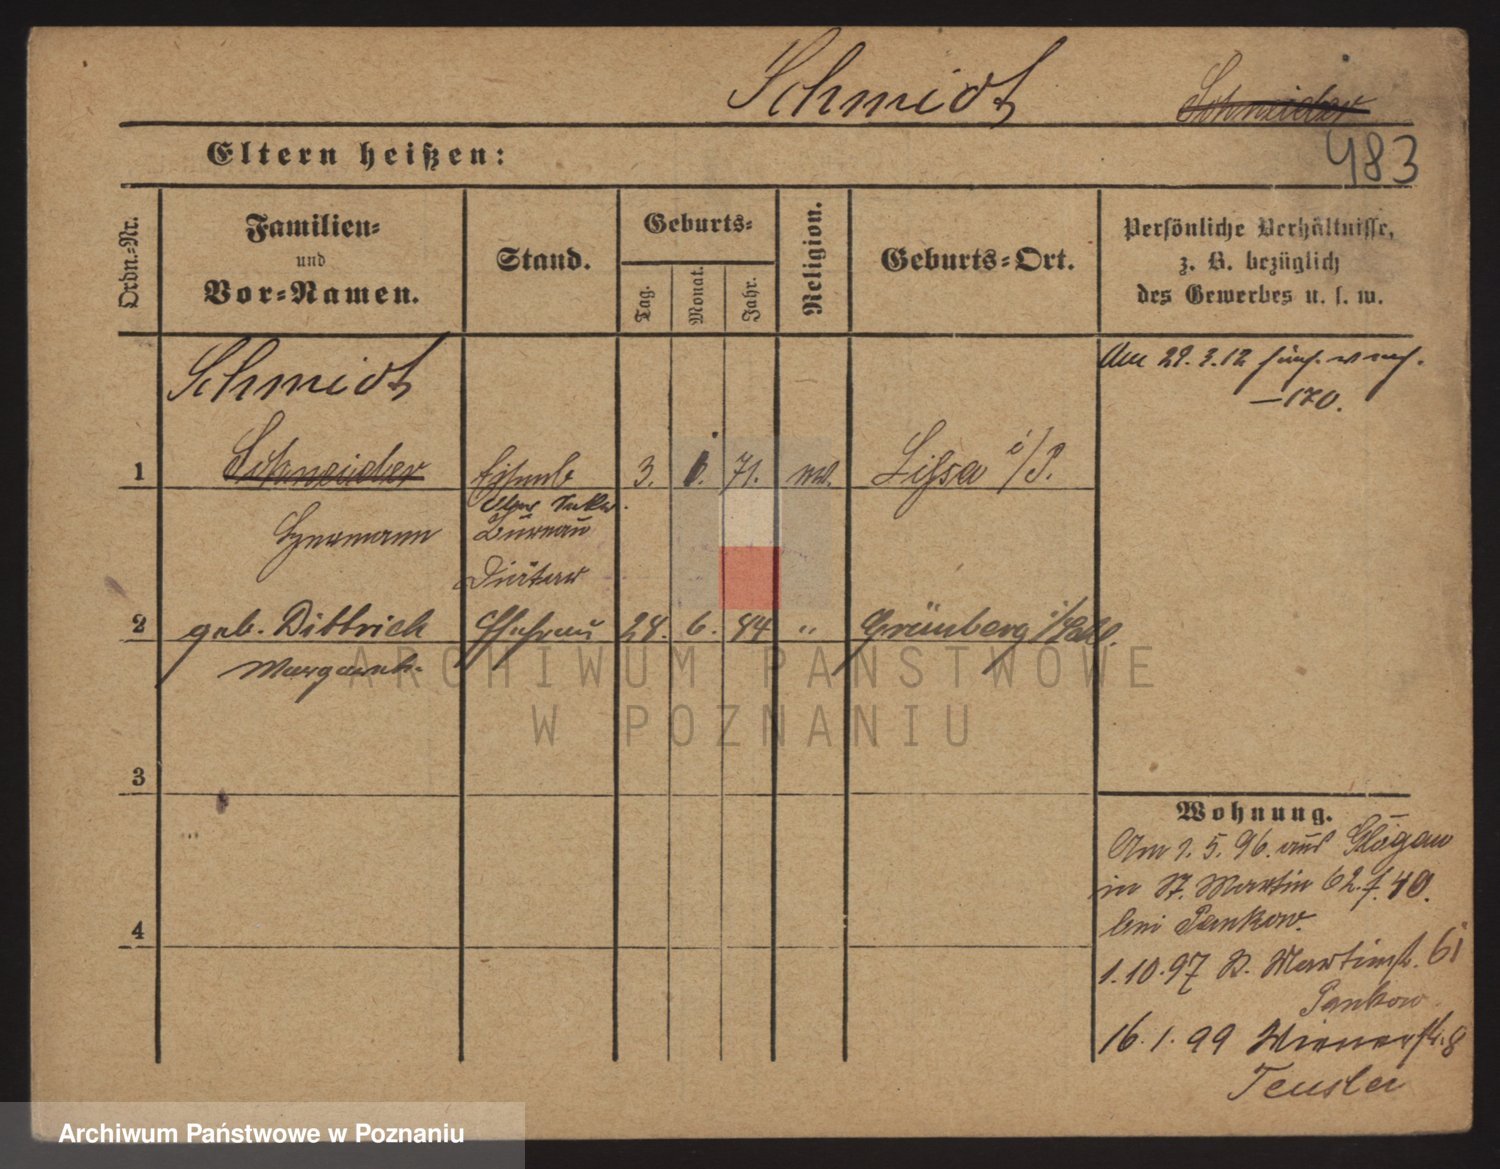 Schmidt Schneider
483
Eltern heißen:
Ordn.-Nr.
Familien- und Vor-Namen.
Stand.
Geburts-
Tag.
Monat.
Jahr.
Religion.
Geburts-Ort.
Persönliche Verhältnisse,
z. B. bezüglich
des Gewerbes u. s. w.
Schmidt
Am 29.3.12
—170.
1 Schneider 3. 71. Lissa i/P.
Hermann Bureau
Diätar
2 geb. Dittrich Ehefrau 28. 6. 84 " Grünberg i/Schl.
3
4
Wohnung.
Am 1.5.96. aus Glogau
in St. Martin 62. f. 40.
bei Pankow.
1.10.97 St. Martinstr. 61
Pankow
16.1.99 Wienerstr. 8
ARCHIWUM PAŃSTWOWE
W POZNANIU
Archiwum Państwowe w Poznaniu